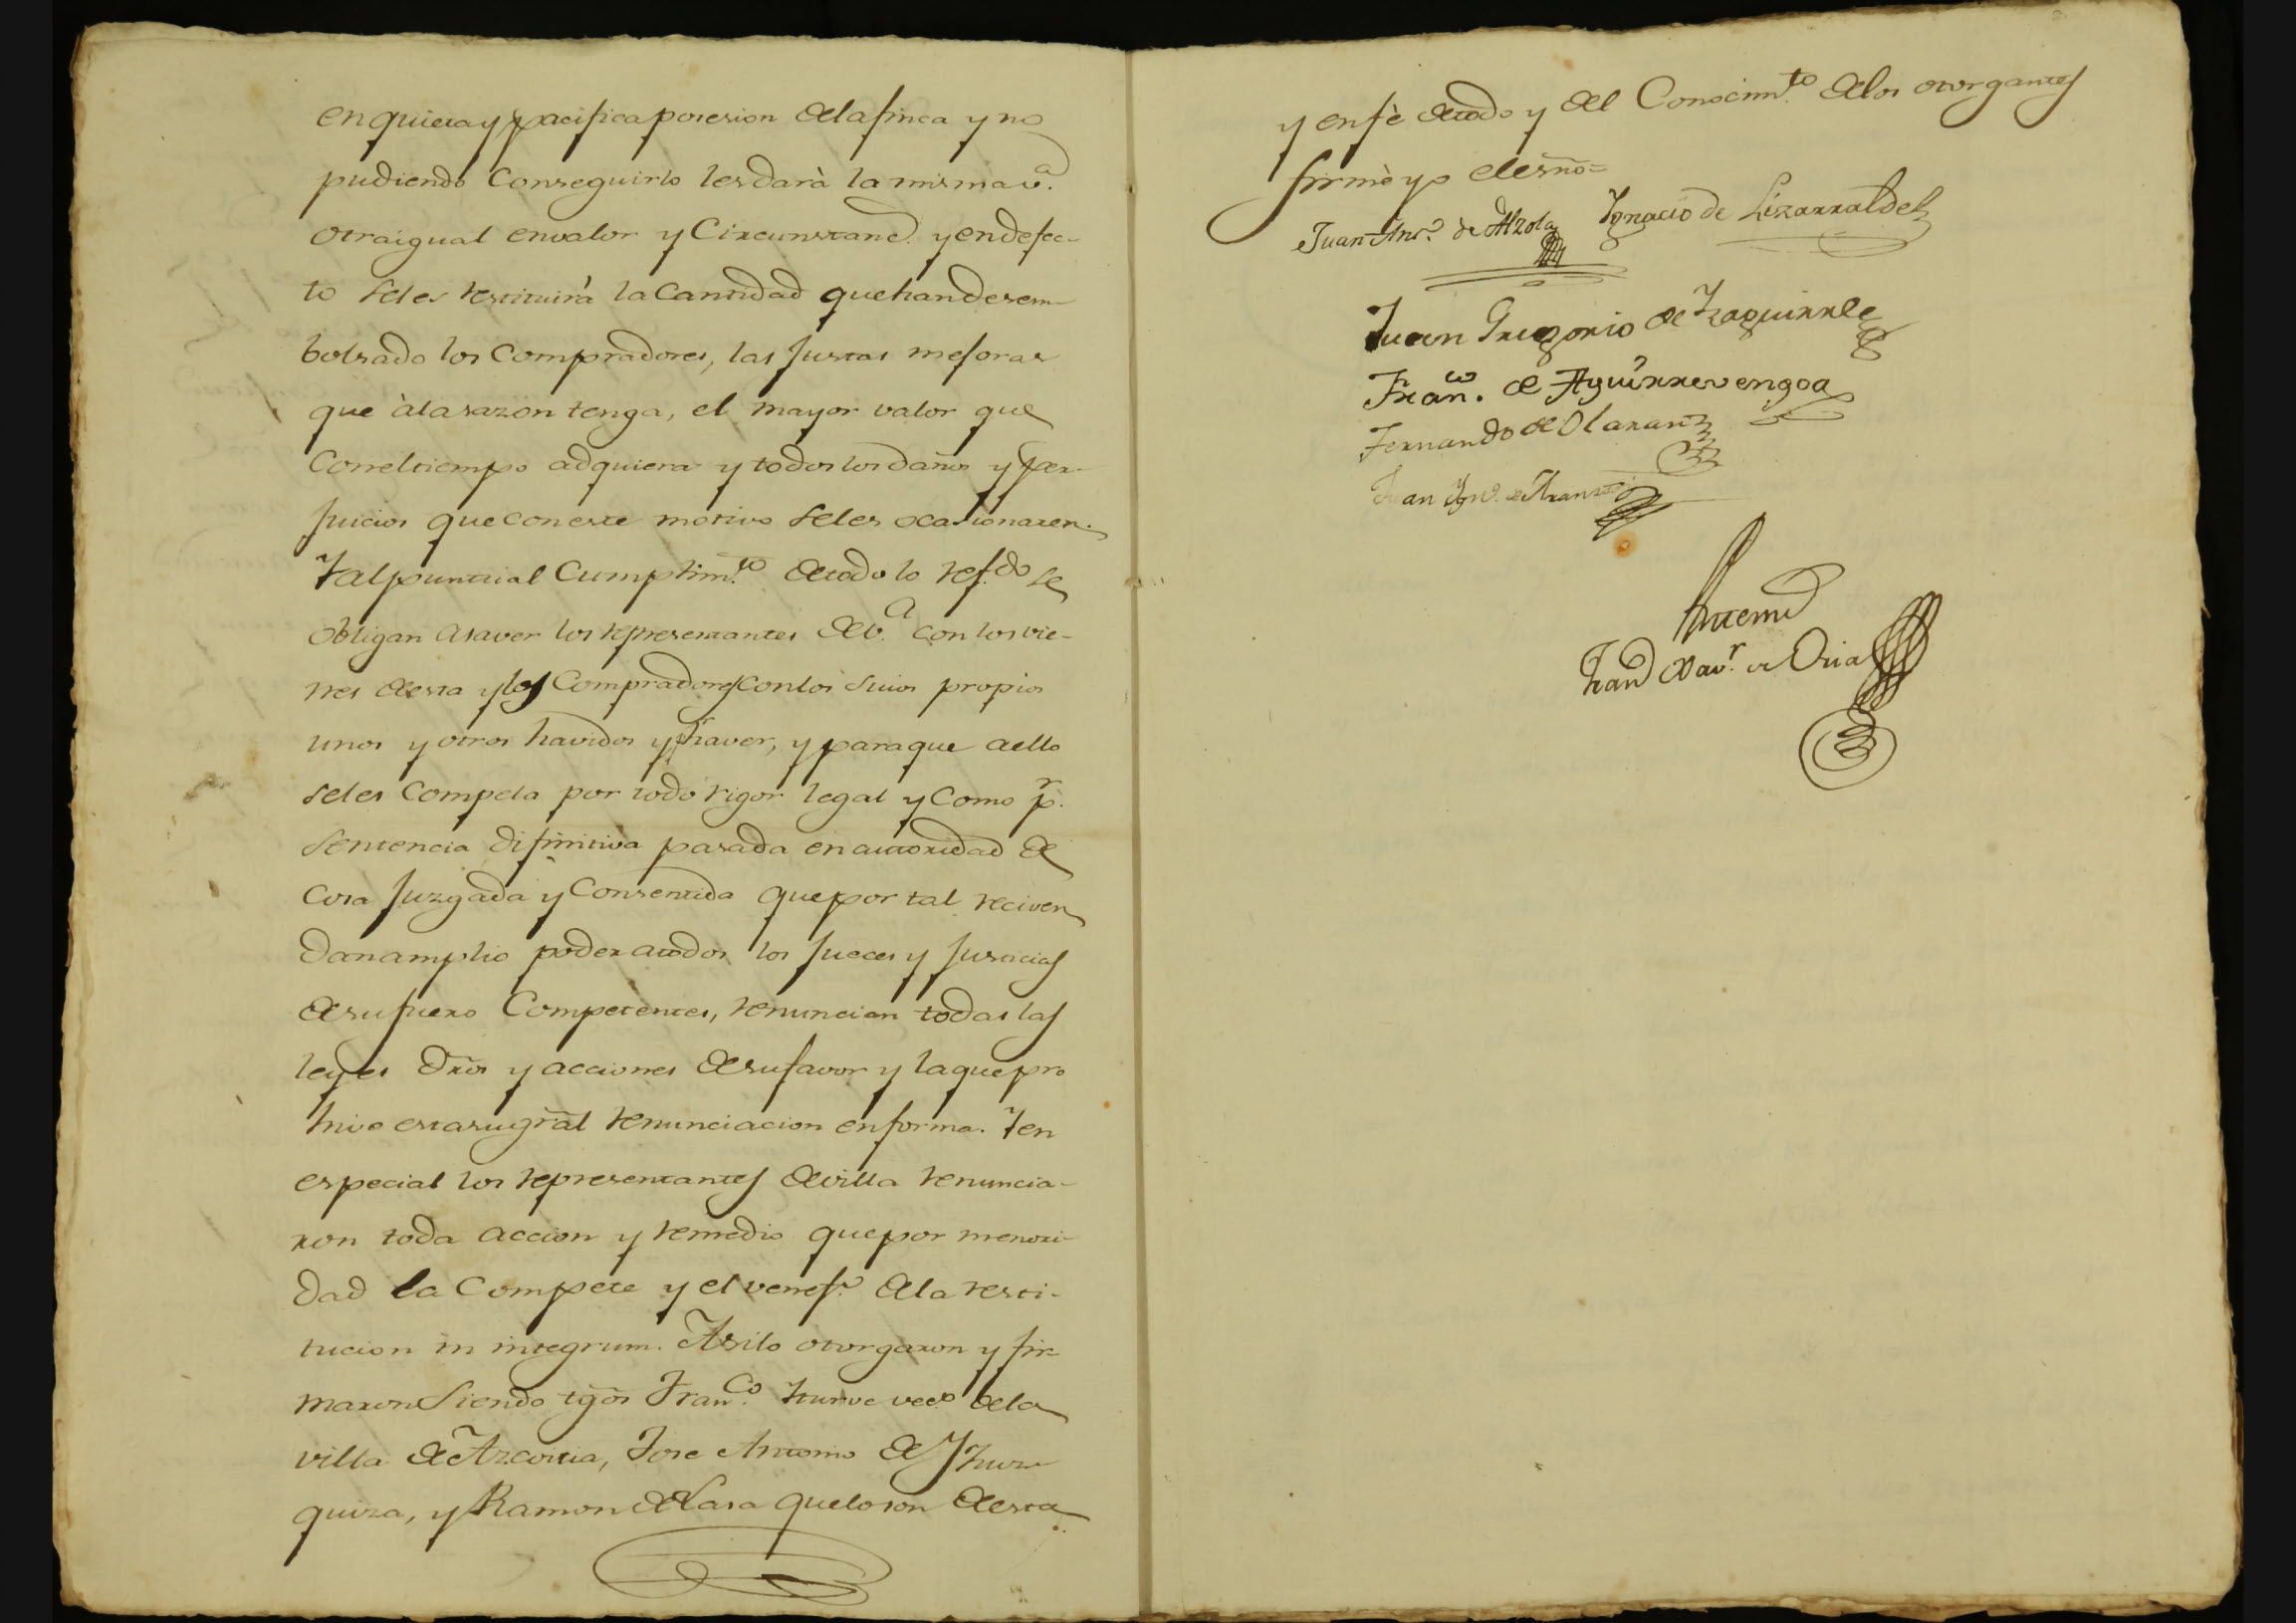 en quieta y pacifica posesion de la finca y no
pudiendo conseguirlo les darà la misma v.ª
otra igual en valor y Circunstanc.ˢ y en defec-
to se les restituirá la Cantidad que han desem-
bolsado los Compradores, las Justas mejoras
que à la sazon tenga, el mayor valor que
con el tiempo adquiera y todos los daños y per-
Juicios que con este motivo se les ocasionaren.
Y al puntual Cumplim.to de todo lo ref.do se
obligan a saver los representantes de v.ª con los vie-
nes de esta y los Compradores con los suios propios
unos y otros havidos y p.r haver, y para que a ello
se les Compela por todo rigor legal y Como p.r
Sentencia difinitiva pasada en autoridad de
Cosa Juzgada y Consentida que por tal reciven
dan amplio poder a todos los Jueces y Justicias
de su fuero Competentes, renuncian todas las
leyes Dros y acciones de su favor y la que pro
hive esta su gral renunciacion en forma. Y en
especial los representantes de villa renuncia-
ron toda accion y remedio que por menori-
dad la Compete y el venef.º de la resti-
tucion in integrum. Asi lo otorgaron y fir-
maron Siendo tgos Fran.co Yturve vec.º de la
villa de Azcoitia, Jose Antonio de Yzur-
quiza, y Ramon de Lasa que lo son de esta
y en fè de todo y del Conocim.to de los otorgantes
firmè yo el esño=
Juan Ant.º de Alzola Ygnacio de Lizarralde
Juan Gregorio de Yzaguirre
Fran.co de Aguirrevengoa
Fernando de Olaran
Juan Ygn.º de Aranza
Antemi
Fran.co Xav.r de Oria